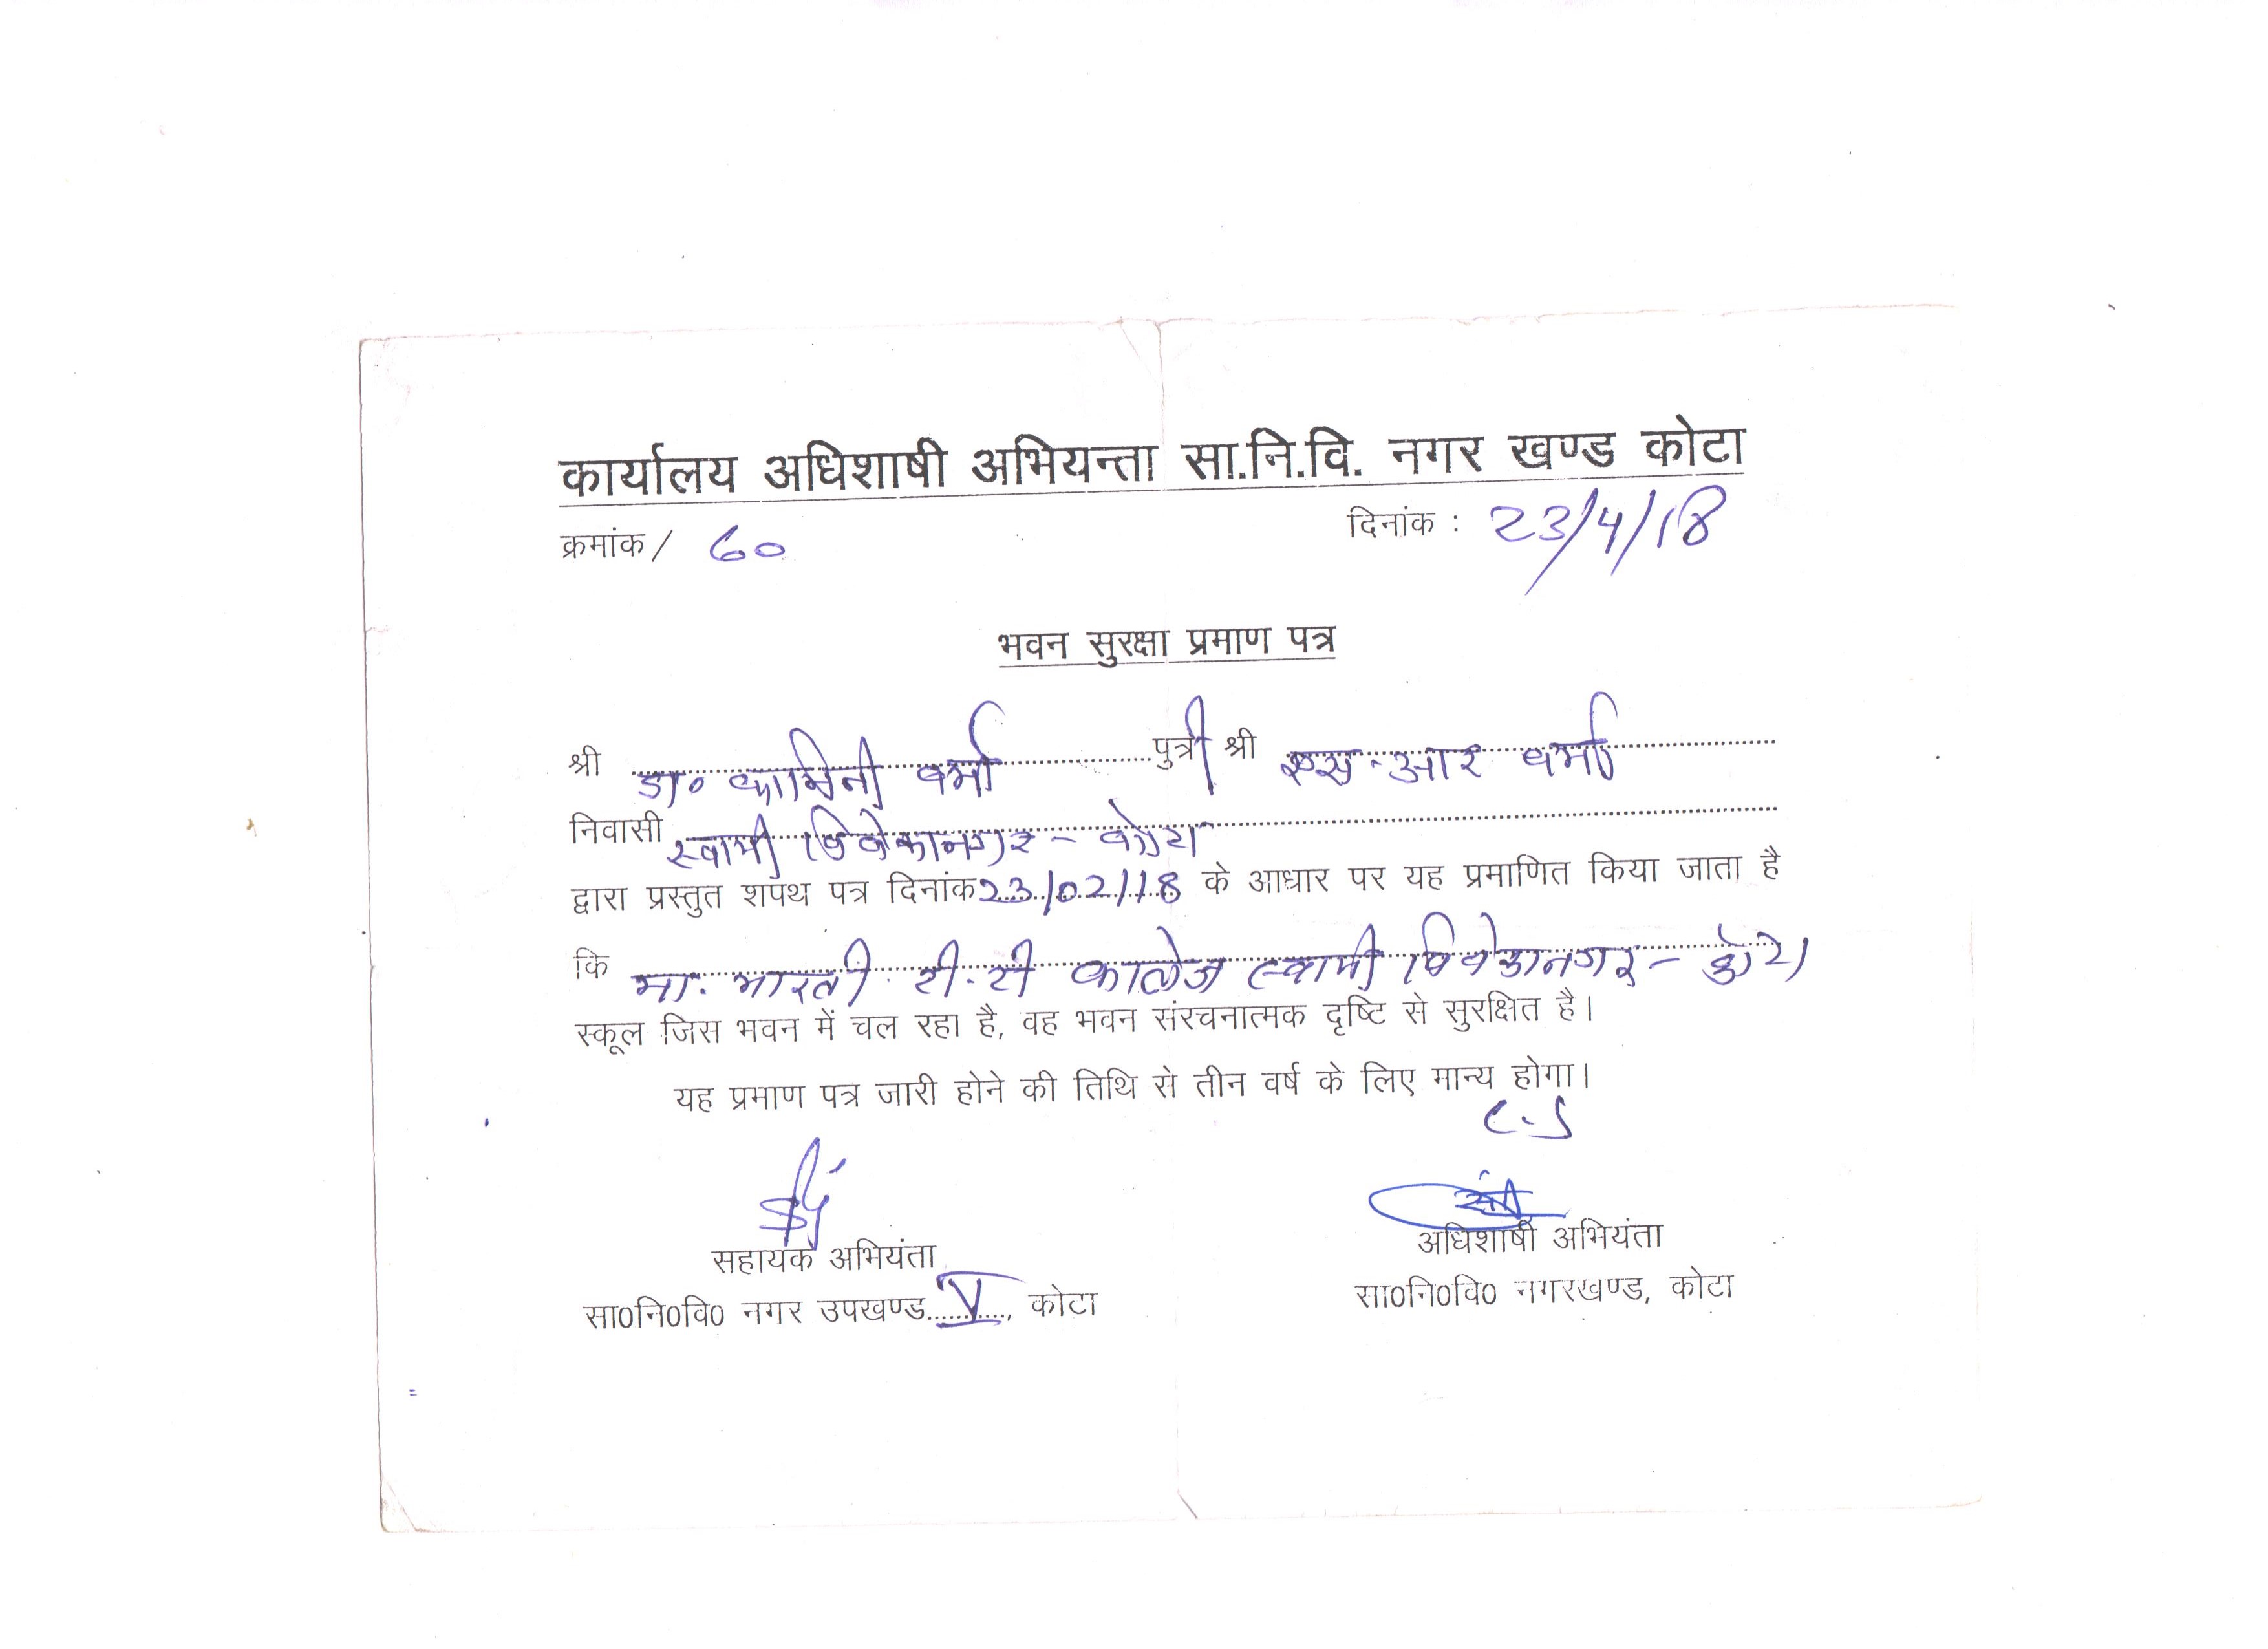 कार्यालय अधिशाषी अभियन्ता सा.नि.वि. नगर खण्ड कोटा
क्रमांक/ 60 दिनांक : 23/4/18
भवन सुरक्षा प्रमाण पत्र
श्री डा० कामिनी वर्मा पुत्री श्री एस.आर वर्मा
निवासी स्वामी विवेकानगर - कोटा
द्वारा प्रस्तुत शपथ पत्र दिनांक 23/02/18 के आधार पर यह प्रमाणित किया जाता है
कि मा. भारती टी.टी कालेज स्वामी विवेकानगर - कोटा
स्कूल जिस भवन में चल रहा है, वह भवन संरचनात्मक दृष्टि से सुरक्षित है।
यह प्रमाण पत्र जारी होने की तिथि से तीन वर्ष के लिए मान्य होगा।
C.S
सहायक अभियंता अधिशाषी अभियंता
सा०नि०वि० नगर उपखण्ड V, कोटा सा०नि०वि० नगरखण्ड, कोटा